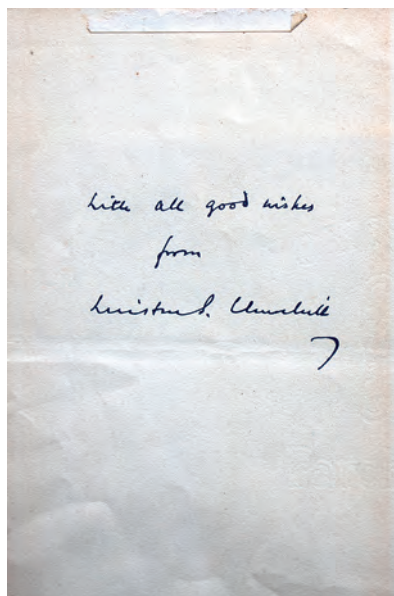 With all good wishes
from
Winston S. Churchill